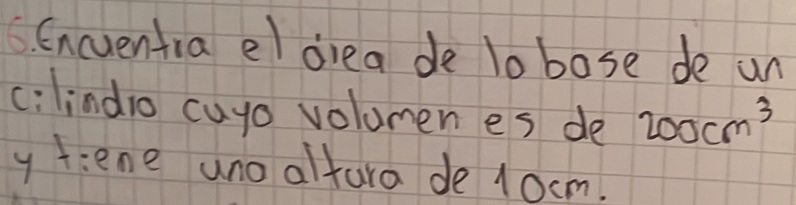 6. Encuentra el área de la base de un
cilindro cuyo volumen es de 200cm³
y tiene una altura de 10cm.